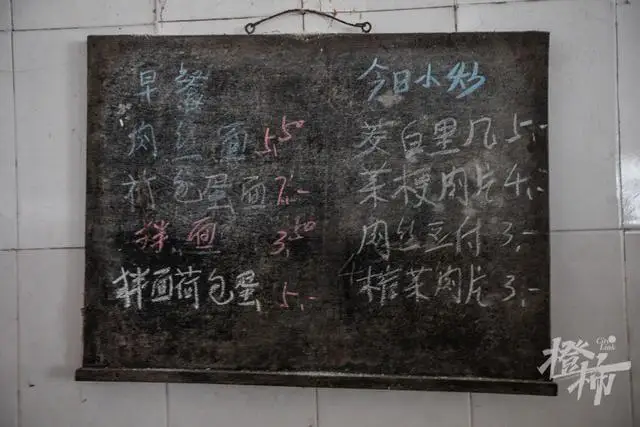 早餐
肉丝面 5.50
荷包蛋面 7,-
拌面 3.50
拌面荷包蛋 5,-
今日小炒
茭白里几 5,-
菜梗肉片 4,-
肉丝豆付 3,-
榨菜肉片 3,-
橙柿